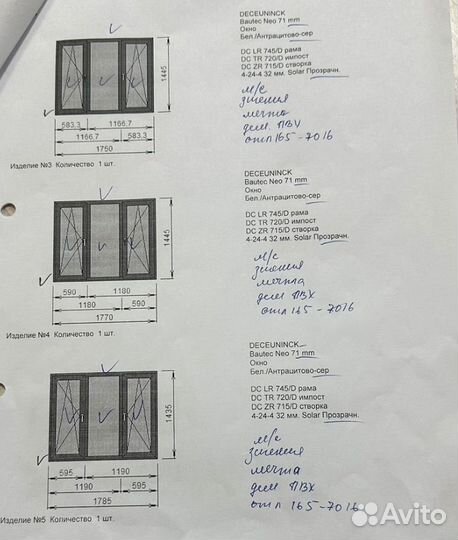 DECEUNINCK
Bautec Neo 71 mm
Окно
Бел./Антрацитово-сер
DC LR 745/D рама
DC TR 720/D импост
DC ZR 715/D створка
4-24-4 32 мм. Solar Прозрачн.
м/с
мечта
ПВХ
отл 165-7016
1445
583.3
1166.7
1166.7
583.3
1750
Изделие №3 Количество 1 шт.
DECEUNINCK
Bautec Neo 71 mm
Окно
Бел./Антрацитово-сер
DC LR 745/D рама
DC TR 720/D импост
DC ZR 715/D створка
4-24-4 32 мм. Solar Прозрачн.
м/с
мечта
ПВХ
отл 165-7016
1445
590
1180
1180
590
1770
Изделие №4 Количество 1 шт.
DECEUNINCK
Bautec Neo 71 mm
Окно
Бел./Антрацитово-сер
DC LR 745/D рама
DC TR 720/D импост
DC ZR 715/D створка
4-24-4 32 мм. Solar Прозрачн.
м/с
мечта
ПВХ
отл 165-7016
1435
595
1190
1190
595
1785
Изделие №5 Количество 1 шт.
Avito